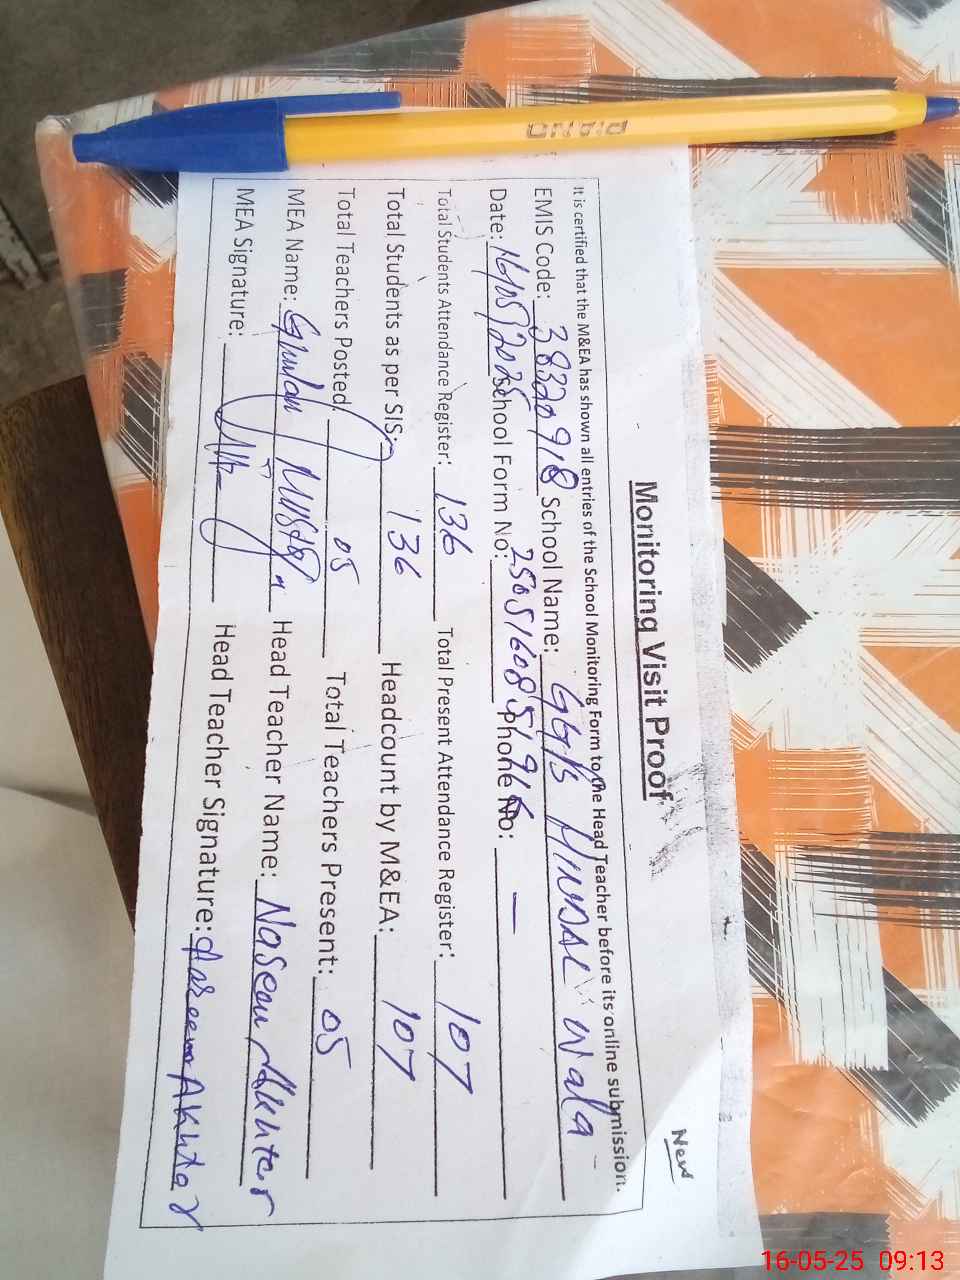 PIANO
New
Monitoring Visit Proof
It is certified that the M&EA has shown all entries of the School Monitoring Form to the Head Teacher before its online submission.
EMIS Code: 38320918 School Name: GGPS HINDAL Wala
Date: 16/05/2025 School Form No: Phone No: —
Total Students Attendance Register: 136 Total Present Attendance Register: 107
Total Students as per SIS: 136 Headcount by M&EA: 107
Total Teachers Posted: 05 Total Teachers Present: 05
MEA Name: Ghulam Head Teacher Name: Naseem Akhter
MEA Signature: Head Teacher Signature: Akhtar
16-05-25 09:13